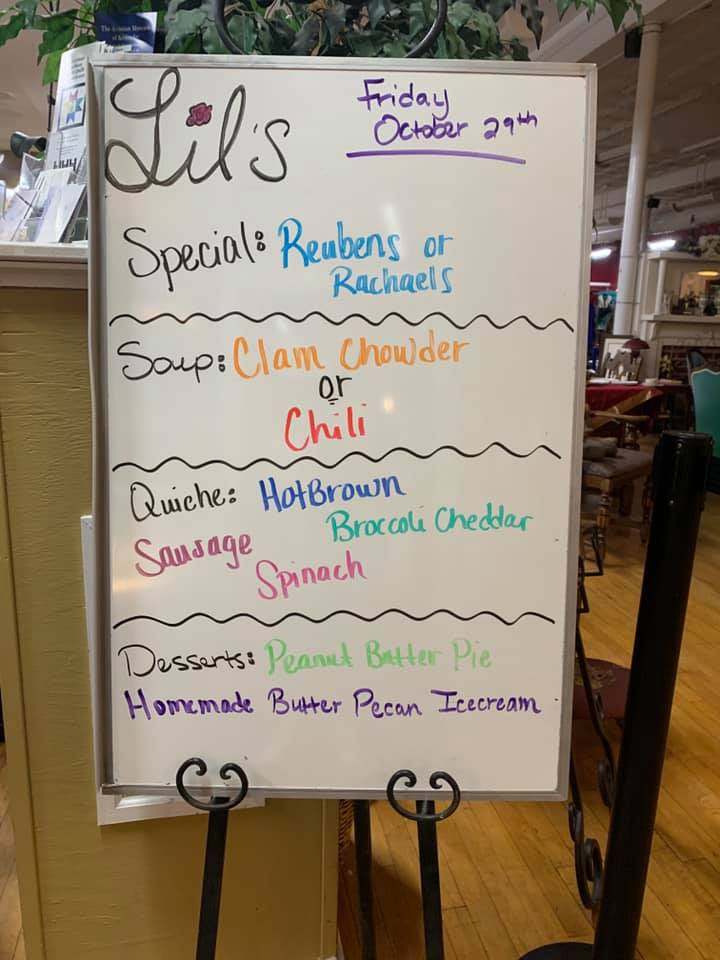 Lil's
Friday
October 29th
Special: Reubens or
Rachaels
Soup: Clam Chowder
or
Chili
Quiche: HotBrown
Broccoli Cheddar
Sausage
Spinach
Desserts: Peanut Butter Pie
Homemade Butter Pecan Icecream